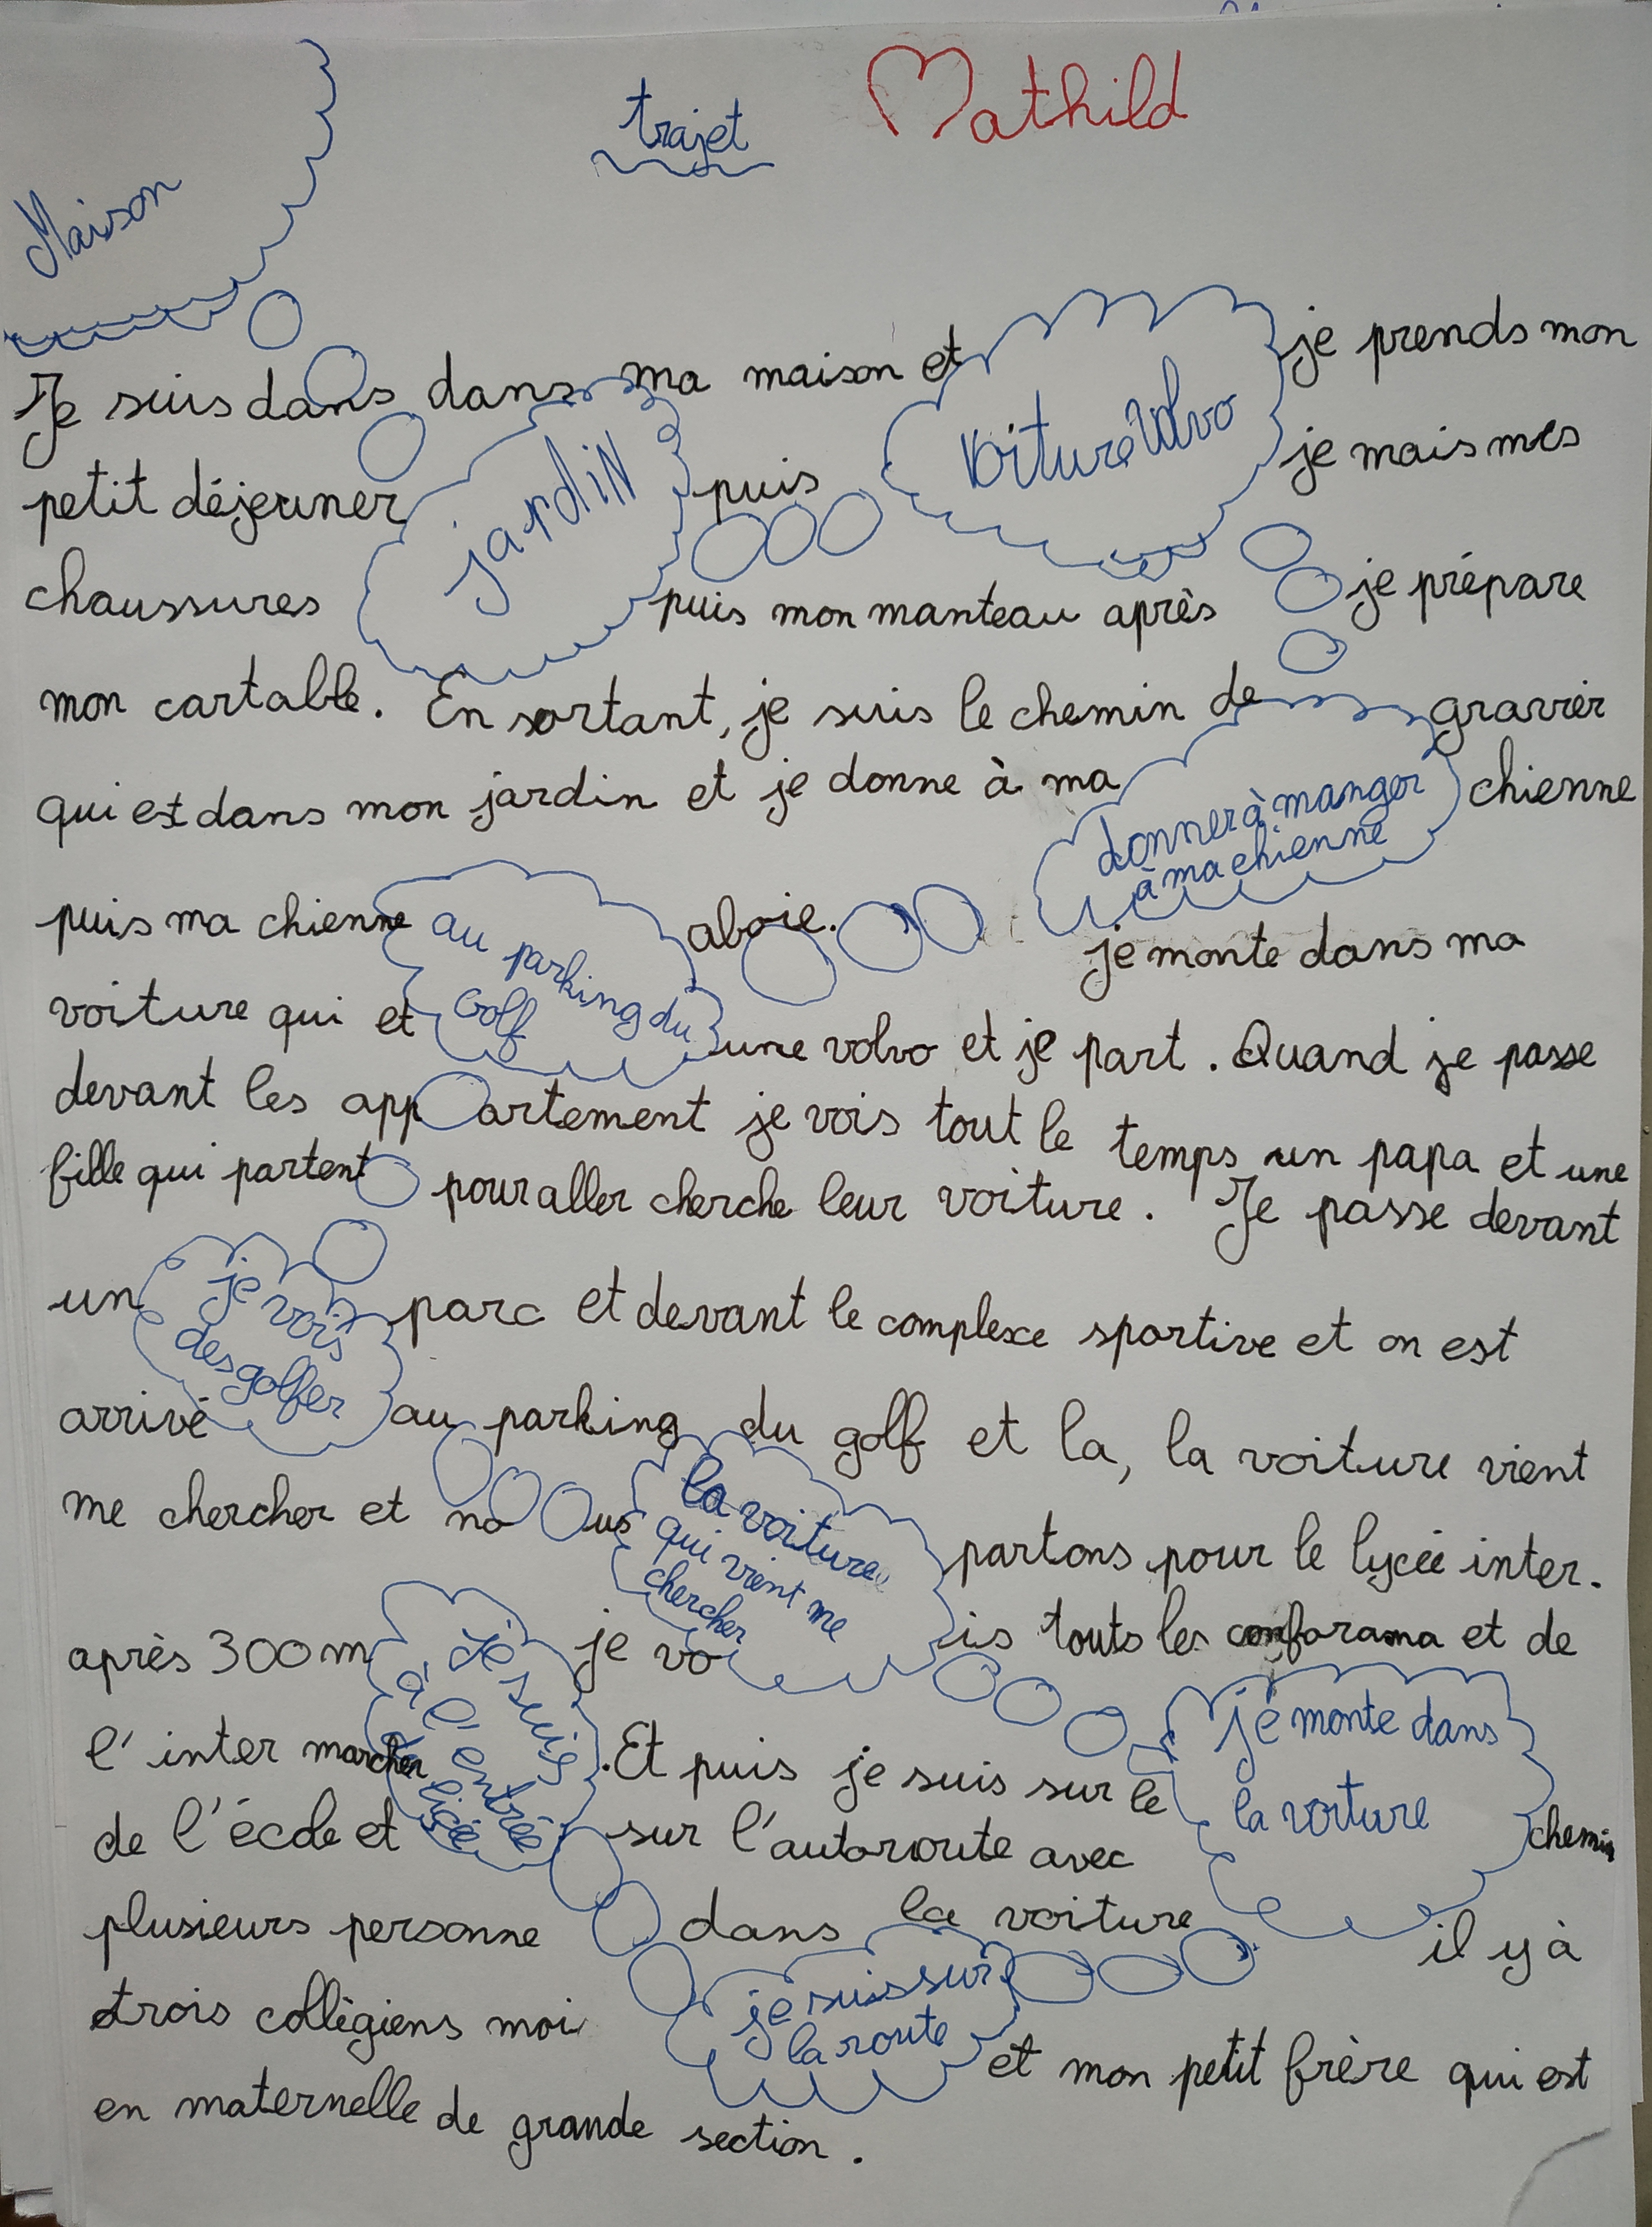 trajet
Mathild
Maison
Je suis dans dans ma maison et je prends mon
voiture Volvo
petit déjeuner puis je mais mes
jardin
chaussures puis mon manteau après je prépare
mon cartable. En sortant, je suis le chemin de gravier
qui est dans mon jardin et je donne à ma chienne
donner à manger
à ma chienne
puis ma chienne aboie. je monte dans ma
au parking du
Golf
voiture qui et une volvo et je part. Quand je passe
devant les appartement je vois tout le temps un papa et une
fille qui partent pour aller cherche leur voiture. Je passe devant
un parc et devant le complexe sportive et on est
je vois
des golfer
arrivé au parking du golf et la, la voiture vient
me chercher et nous partons pour le lycée inter.
la voiture
qui vient me
chercher
après 300m je vois touts les conforama et de
je suis
à l'entrée
licée
l'inter marcher. Et puis je suis sur le chemin
je monte dans
la voiture
de l'école et sur l'autoroute avec
plusieurs personne dans la voiture il y à
trois collègiens moi et mon petit frère qui est
je suis sur
la route
en maternelle de grande section.